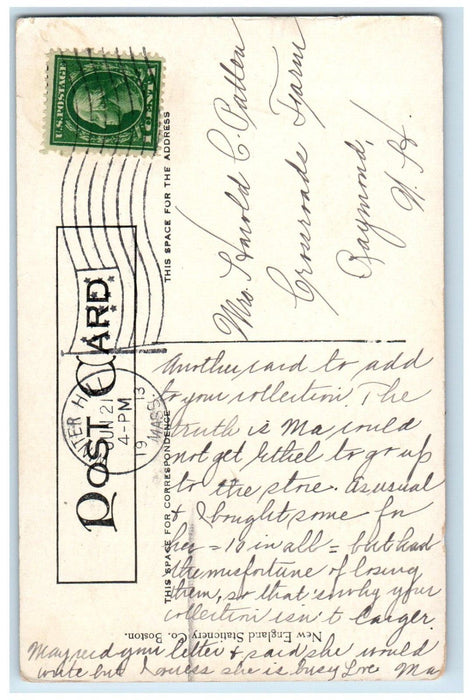 U.S. POSTAGE
1 CENT 1
POST CARD
THIS SPACE FOR THE ADDRESS
Mrs. Harold C. Patten
Crossroads Farm
Raymond,
N. H.
HAVERHILL
JUN 21
4-PM
1913
MASS.
THIS SPACE FOR CORRESPONDENCE
Another card to add
to your collection. The
truth is Ma could
not get Ethel to go up
to the store. As usual
& I bought some for
her = 10 in all = but had
the misfortune of losing
them, so that's why your
collection isn't larger.
May read your letter & said she would
write but I guess she is busy Love Ma
New England Stationery Co. Boston.